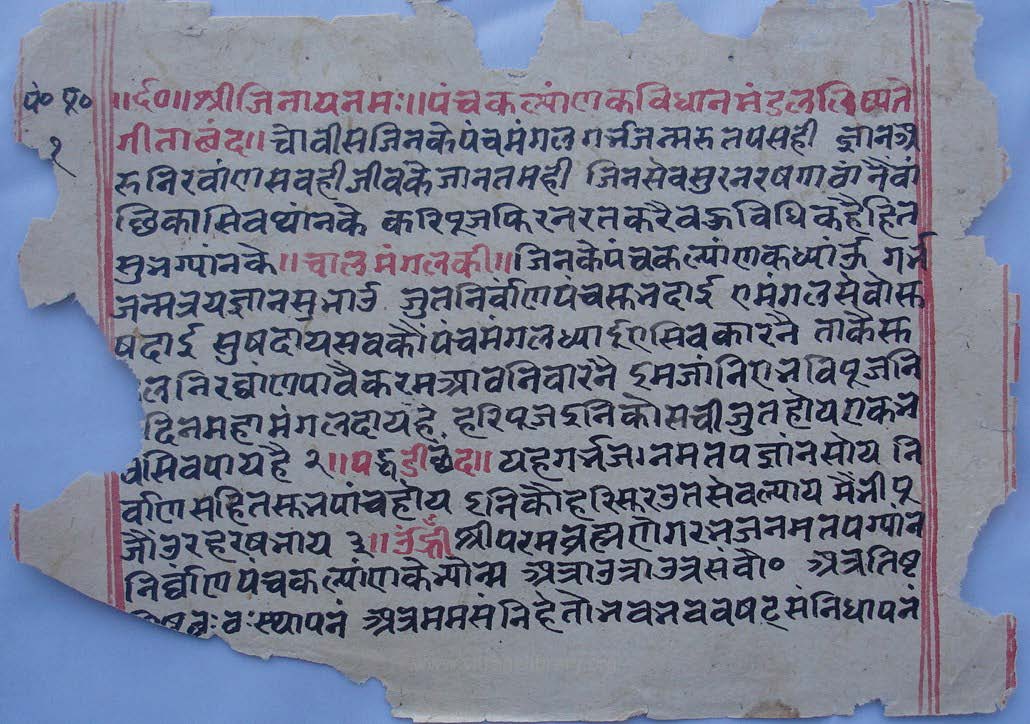 पं० पू०
१
॥र्द०॥श्रीजिनायनमः॥पंचकल्यांणकविधानमंडललिष्यते
गीताछंद॥चौवीसजिनकेपंचमंगलगर्भजन्मरुतपसही ज्ञानअै
रुनिरवांणसवहीजीवकैजानतमही जिनसेवसुरनरषगावांनैवां
छिकासिवथांनकै करिपूजफिरनरतकरैवऊविधिकहैहित
सुभग्यांनकै॥चालमंगलकी॥जिनकेपंचकल्यांणकध्यांऊं गर्भ
जन्मत्रयज्ञानसुभाउ जुतनिर्वांणपंचसुभदाई एमंगलसेवोसु
षदाई सुषदायसवकौंपंचमंगलध्याईएसिवकारनै ताकैसु
लनिरवांणपावैकरमआवनिवारनै इमजांनिएभविपूजनि
दिनमहामंगलदायहे हरिपूजइनिकोसचीजुतहोयएकभ
वसिवपायहै २॥पद्धडीछंद॥यहगर्भजनमतपज्ञांनसोय नि
र्वांणसहितसुभपांचहोय इनिकौहरिसुरउतसेवल्याय मैंभीपू
जौउरहरषभाय ३॥उंह्रीँश्रीपरमब्रह्मणेगरभजनमतपग्यांन
निर्वांणपंचकल्यांणकेभ्योन्म अत्राउत्राउत्रसंवौ० अत्रतिष्ट
स्थापनं अत्रममसंनिहेतोभवभववषट्संनिधापनं